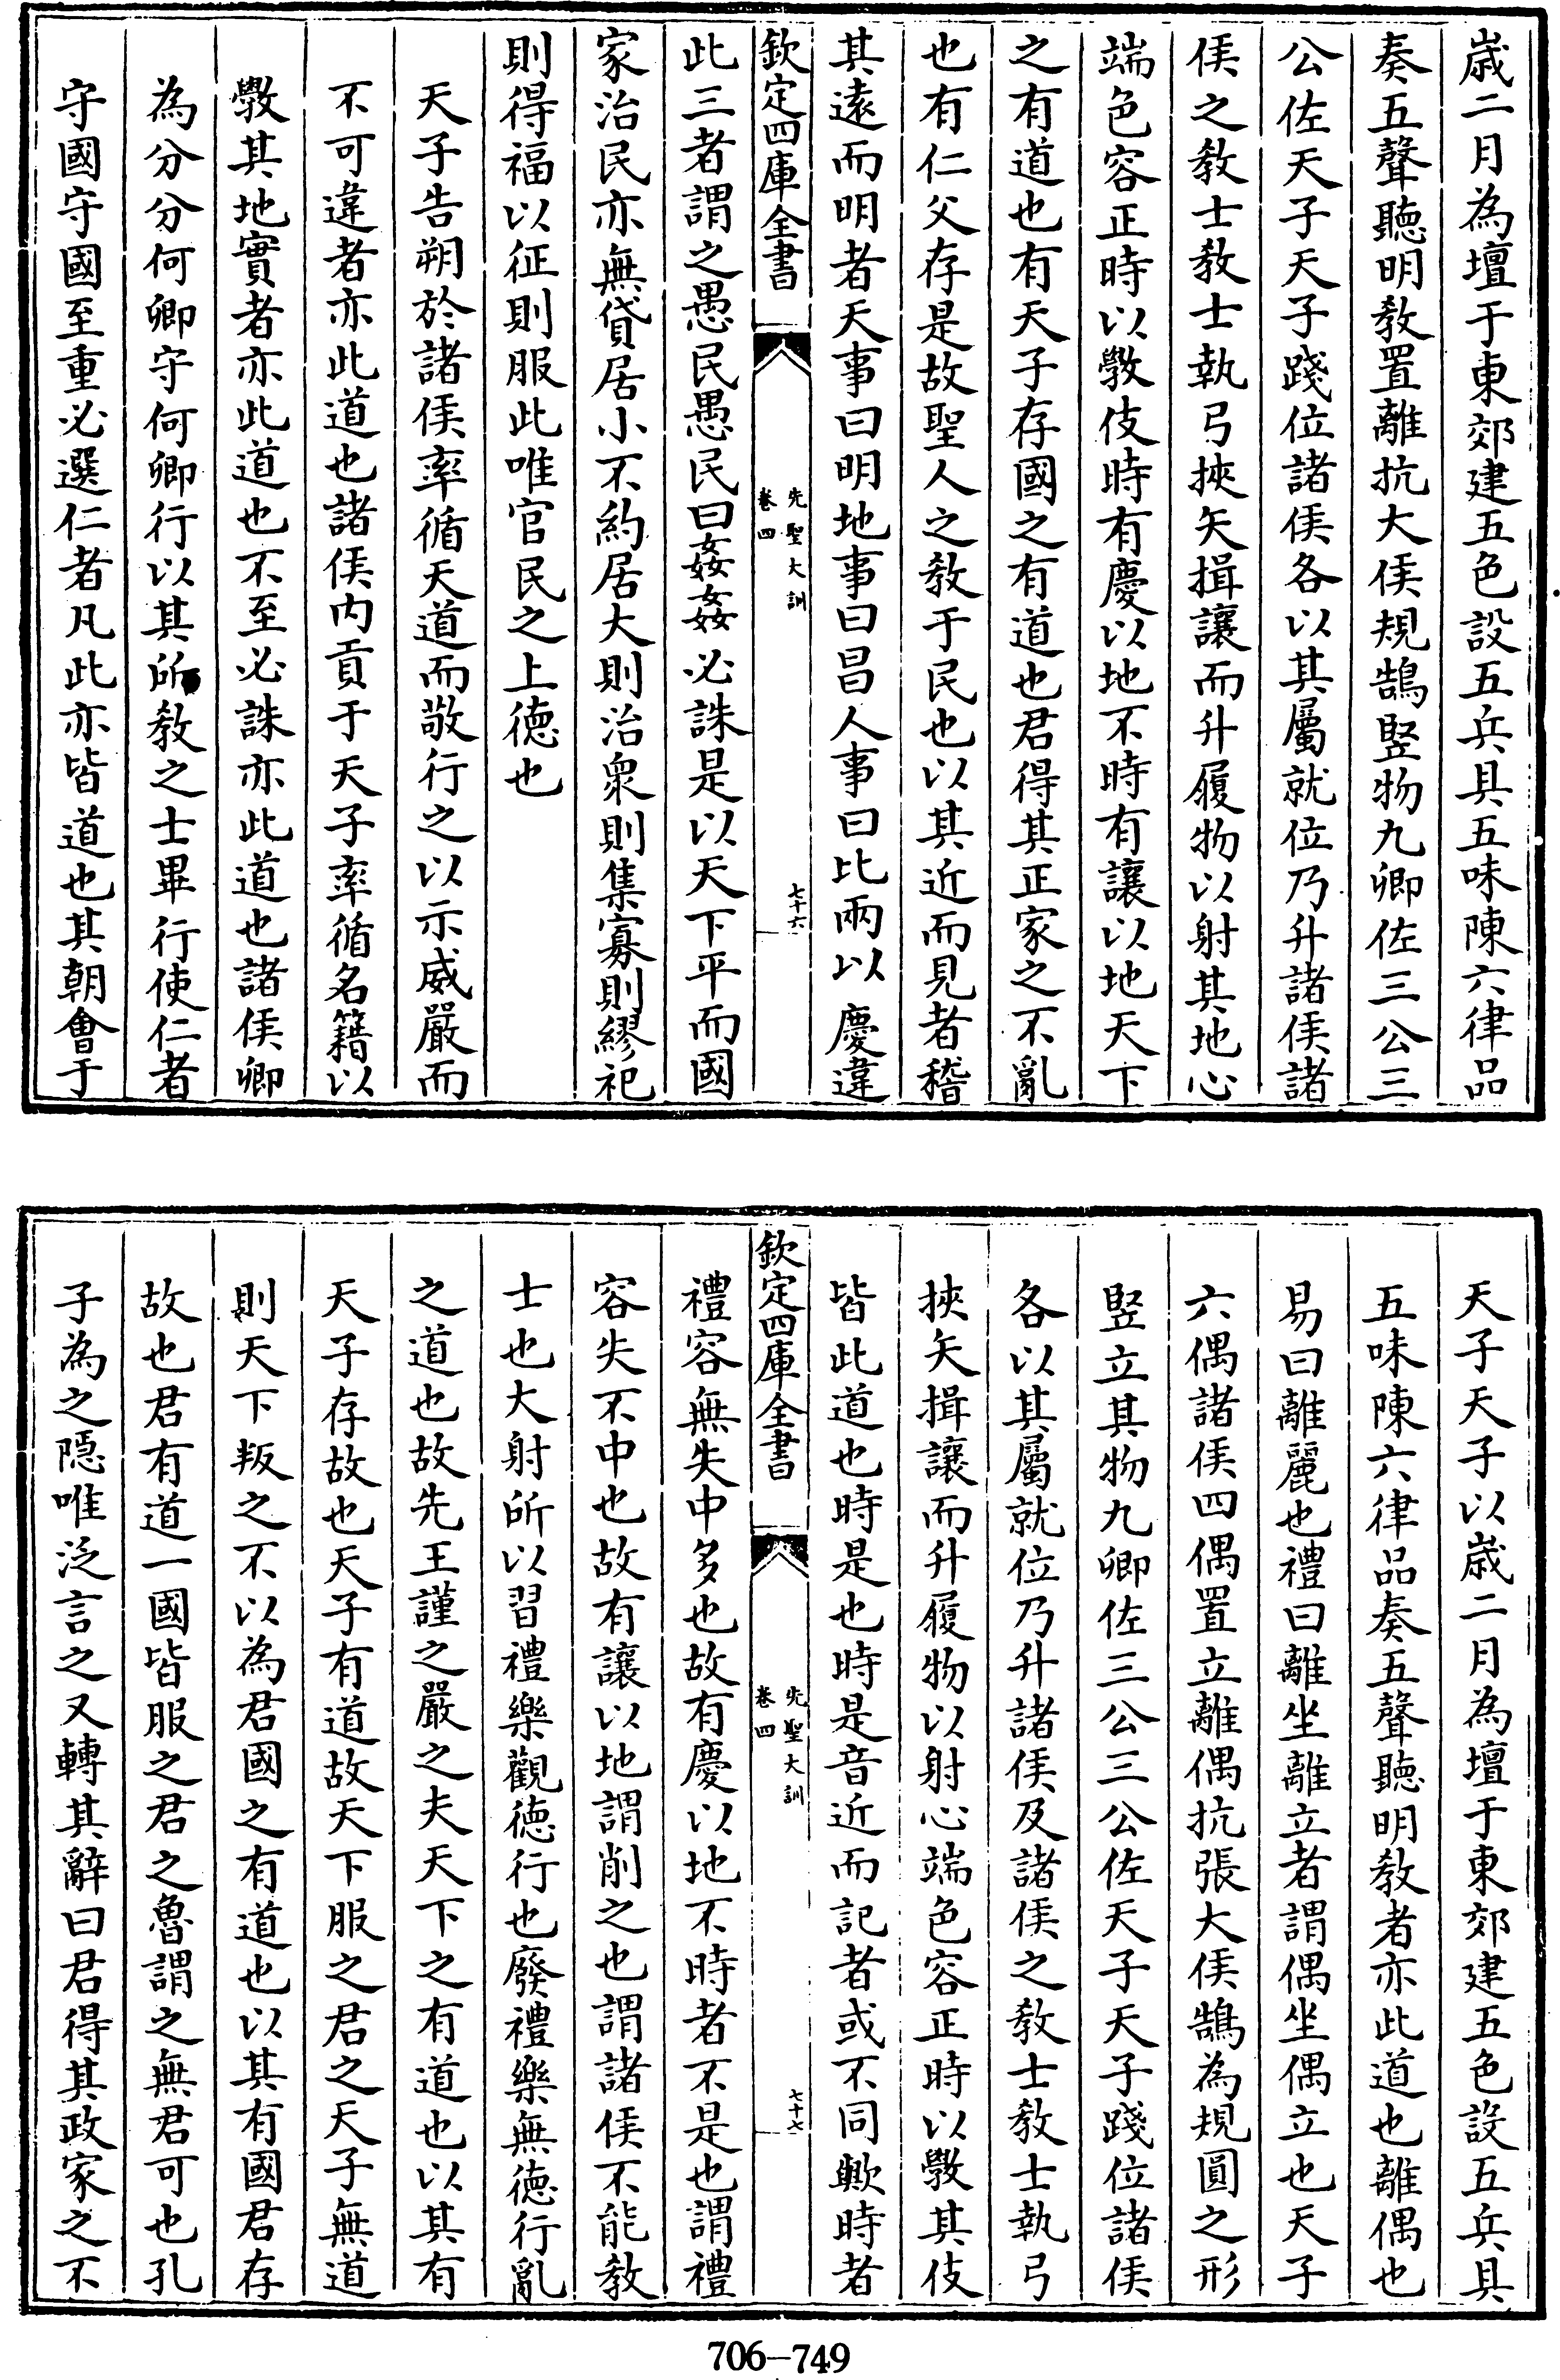 歲二月為壇于東郊建五色設五兵具五味陳六律品
奏五聲聽明教置離抗大侯規鵠竪物九卿佐三公三
公佐天子天子踐位諸侯各以其屬就位乃升諸侯諸
侯之教士教士執弓挾矢揖讓而升履物以射其地心
端色容正時以斅伎時有慶以地不時有讓以地天下
之有道也有天子存國之有道也君得其正家之不亂
也有仁父存是故聖人之教于民也以其近而見者稽
其遠而明者天事曰明地事曰昌人事曰比兩以慶違
欽定四庫全書
先聖大訓
卷四
七十六
此三者謂之愚民愚民曰姦姦必誅是以天下平而國
家治民亦無貸居小不約居大則治衆則集寡則繆祀
則得福以征則服此唯官民之上德也
天子告朔於諸侯率循天道而敬行之以示威嚴而
不可違者亦此道也諸侯内貢于天子率循名籍以
斅其地實者亦此道也不至必誅亦此道也諸侯卿
為分分何卿守何卿行以其所教之士畢行使仁者
守國守國至重必選仁者凡此亦皆道也其朝會于
天子天子以歲二月為壇于東郊建五色設五兵具
五味陳六律品奏五聲聽明教者亦此道也離偶也
易曰離麗也禮曰離坐離立者謂偶坐偶立也天子
六偶諸侯四偶置立離偶抗張大侯鵠為規圓之形
竪立其物九卿佐三公三公佐天子天子踐位諸侯
各以其屬就位乃升諸侯及諸侯之教士教士執弓
挾矢揖讓而升履物以射心端色容正時以斅其伎
皆此道也時是也時是音近而記者或不同歟時者
欽定四庫全書
先聖大訓
卷四
七十七
禮容無失中多也故有慶以地不時者不是也謂禮
容失不中也故有讓以地謂削之也謂諸侯不能教
士也大射所以習禮樂觀德行也廢禮樂無德行亂
之道也故先王謹之嚴之夫天下之有道也以其有
天子存故也天子有道故天下服之君之天子無道
則天下叛之不以為君國之有道也以其有國君存
故也君有道一國皆服之君之魯謂之無君可也孔
子為之隱唯泛言之又轉其辭曰君得其政家之不
706-749